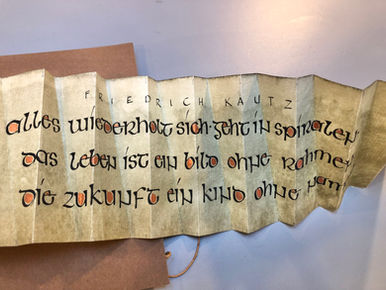 FRIEDRICH KAUTZ
alles wiederholt sich·geht in spiralen
das leben ist ein bild ohne rahmen
die zukunft ein kind ohne